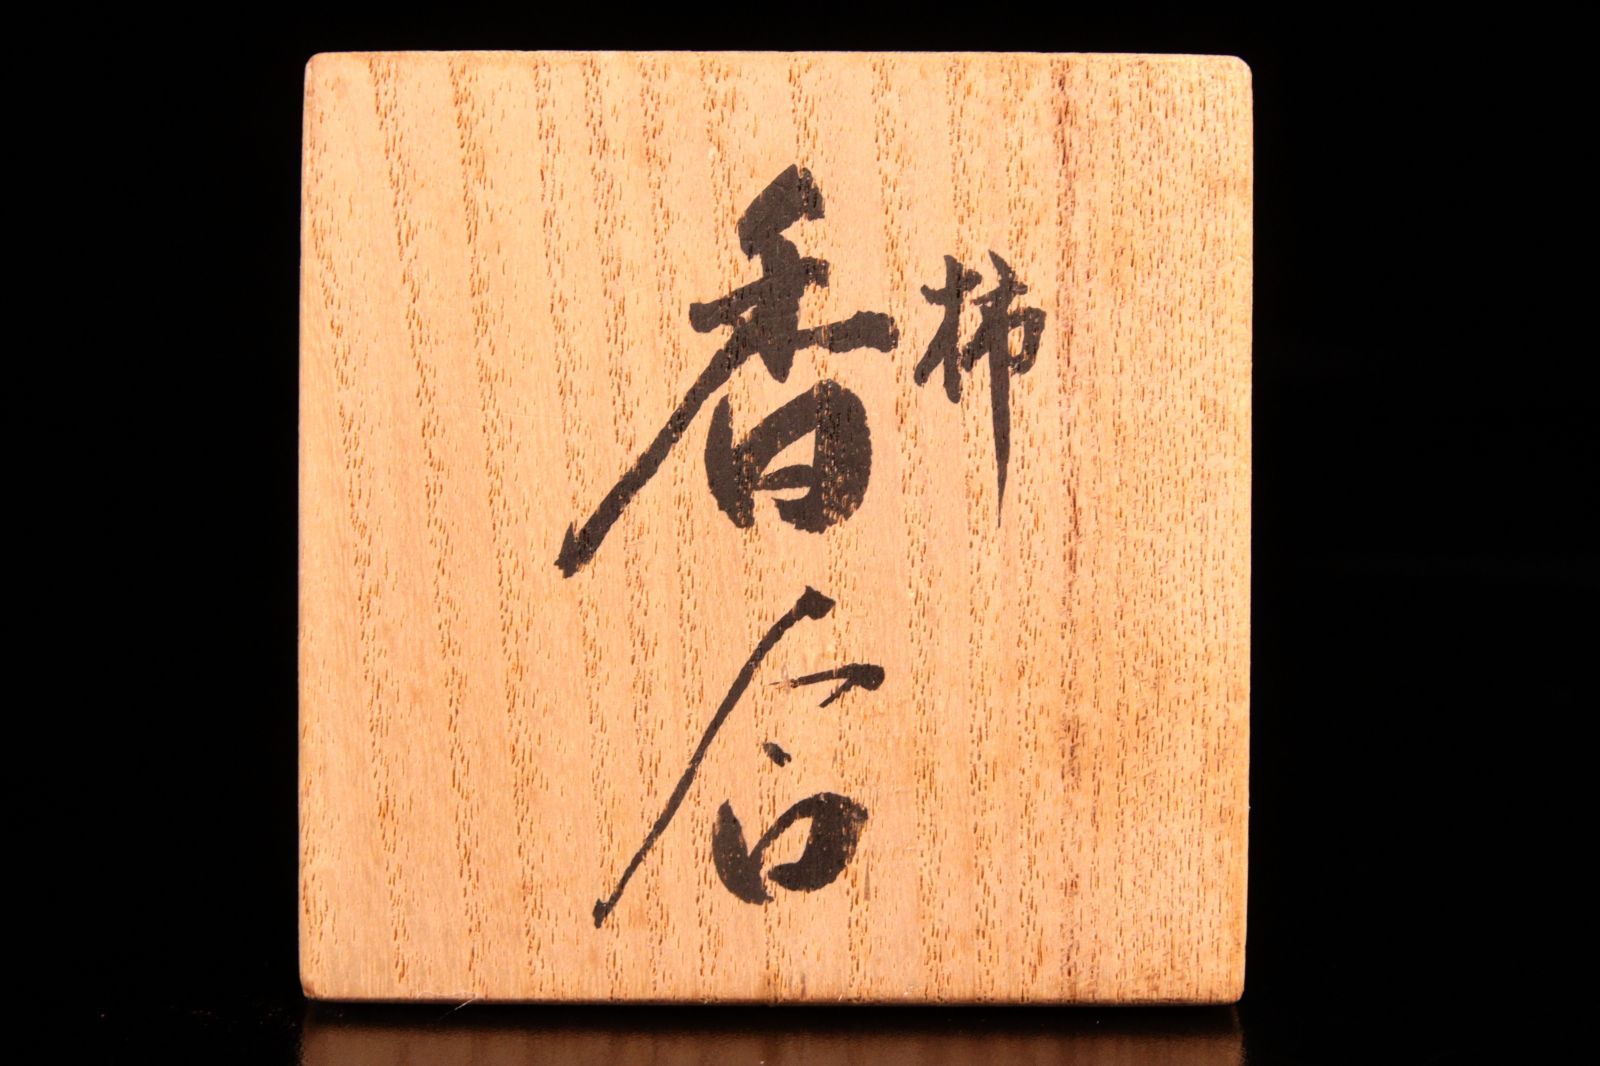 柿
香合